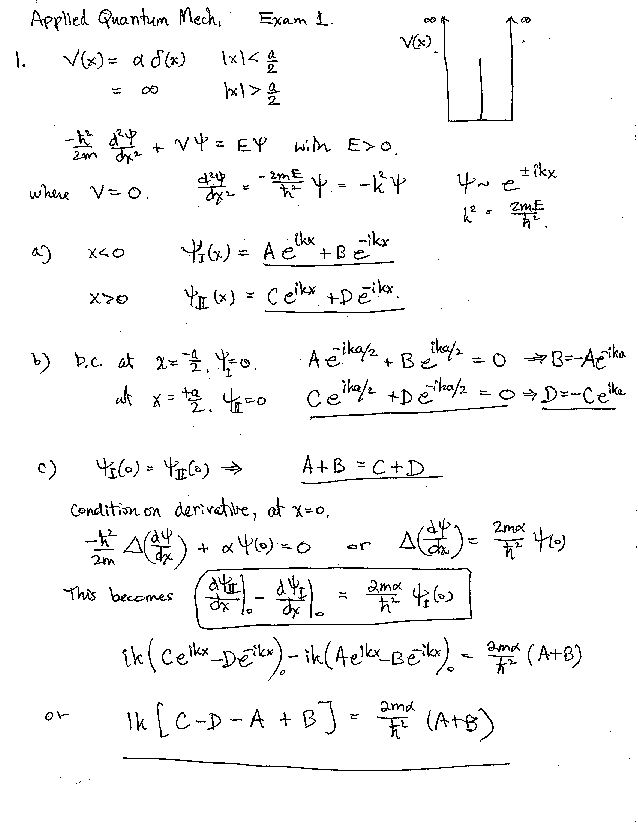 Applied Quantum Mech. Exam 1.
1. V(x) = α δ(x) |x| < a/2
= ∞ |x| > a/2
V(x) ∞ ∞
-ħ²/2m d²ψ/dx² + Vψ = Eψ with E>0.
where V=0. d²ψ/dx² = -2mE/ħ² ψ = -k²ψ ψ ~ e^{±ikx}
k² = 2mE/ħ².
a) x<0 ψ_I(x) = A e^{ikx} + B e^{-ikx}
x>0 ψ_II(x) = C e^{ikx} + D e^{-ikx}.
b) b.c. at x = -a/2, ψ_I = 0. A e^{-ika/2} + B e^{ika/2} = 0 ⇒ B = -A e^{-ika}
at x = +a/2, ψ_II = 0 C e^{ika/2} + D e^{-ika/2} = 0 ⇒ D = -C e^{ika}
c) ψ_I(0) = ψ_II(0) ⇒ A+B = C+D
Condition on derivative, at x=0,
-ħ²/2m Δ(dψ/dx) + αψ(0) = 0 or Δ(dψ/dx) = 2mα/ħ² ψ(0)
This becomes dψ_II/dx|₀ - dψ_I/dx|₀ = 2mα/ħ² ψ_I(0)
ik(C e^{ikx} - D e^{-ikx})₀ - ik(A e^{ikx} - B e^{-ikx})₀ = 2mα/ħ² (A+B)
or ik[C - D - A + B] = 2mα/ħ² (A+B)